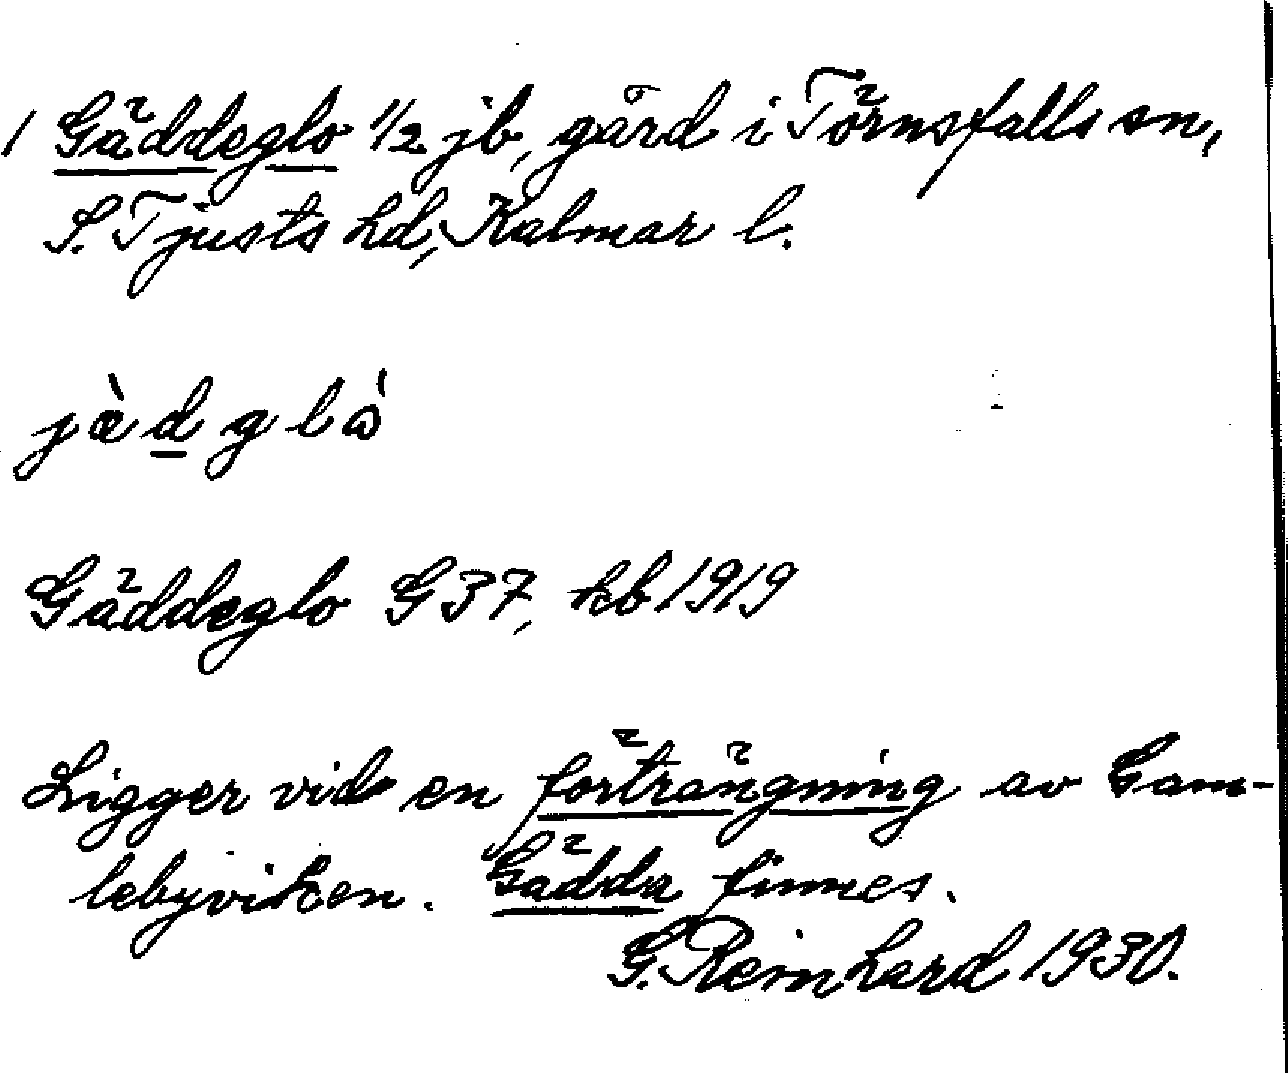 1 Gäddeglo 1/2 jb, gård i Törnsfalls sn,
S. Tjusts hd, Kalmar l.
jæ̀dglɷ̀
Gäddeglo G37, kb 1919
Ligger vid en förträngning av Gam-
lebyviken. Gädda finnes.
G. Reinhard 1930.